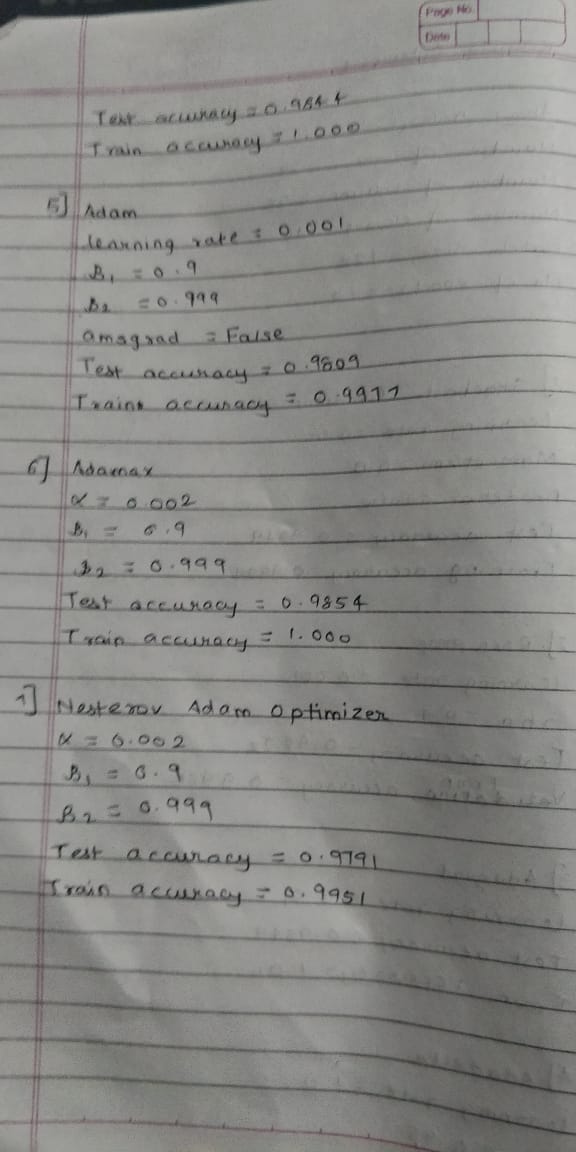 Page No.
Date
Test accuracy = 0.9844
Train accuracy = 1.000
5] Adam
learning rate = 0.001
β₁ = 0.9
β₂ = 0.999
amsgrad = False
Test accuracy = 0.9809
Train accuracy = 0.9977
6] Adamax
α = 0.002
β₁ = 0.9
β₂ = 0.999
Test accuracy = 0.9854
Train accuracy = 1.000
7] Nesterov Adam optimizer
α = 0.002
β₁ = 0.9
β₂ = 0.999
Test accuracy = 0.9791
Train accuracy = 0.9951